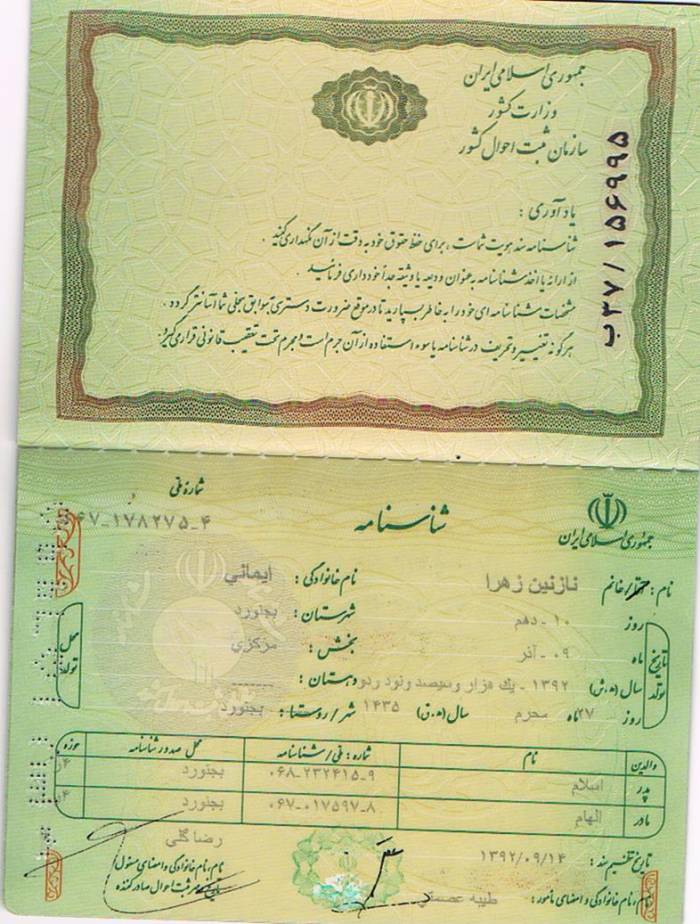 جمهوری اسلامی ایران
وزارت کشور
سازمان ثبت احوال کشور
ب۳۷/۱۵۶۹۹۵
یادآوری :
شناسنامه سند هویت شماست ، برای حفظ حقوق خود به دقت از آن نگهداری کنید .
از ارائه یا اخذ شناسنامه به عنوان ودیعه یا وثیقه جداً خودداری فرمائید .
مشخصات شناسنامه ای خود را به خاطر بسپارید تا در موقع ضرورت دسترسی به سوابق سجلی شما آسانتر گردد .
هرگونه تغییر و تحریف در شناسنامه یا سوء استفاده از آن جرم است و مجرم تحت تعقیب قانونی قرار می گیرد .
جمهوری اسلامی ایران
شناسنامه
شماره ملی
۰۶۷-۱۷۸۲۷۵-۴
نام : آقا/خانم نازنین زهرا نام خانوادگی : ایمانی
تاریخ تولد
روز ۱۰ - دهم شهرستان : بجنورد
ماه ۰۹ - آذر بخش : مرکزی
سال (ه.ش) ۱۳۹۲ - یك هزار و سیصد و نود و دو دهستان : ------
روز ۲۷ ماه محرم سال (ه.ق) ۱۴۳۵ شهر/روستا : بجنورد
محل تولد
والدین نام شماره : ملی/شناسنامه محل صدور شناسنامه حوزه
پدر اسلام ۰۶۸-۲۳۲۴۱۵-۹ بجنورد
مادر الهام ۰۶۷-۰۱۷۵۹۷-۸ بجنورد
تاریخ تنظیم سند : ۱۳۹۲/۰۹/۱۴
نام ، نام خانوادگی و امضای مأمور : طیبه
رضا گلی
نام ، نام خانوادگی و امضای مسئول
ثبت احوال صادر کننده